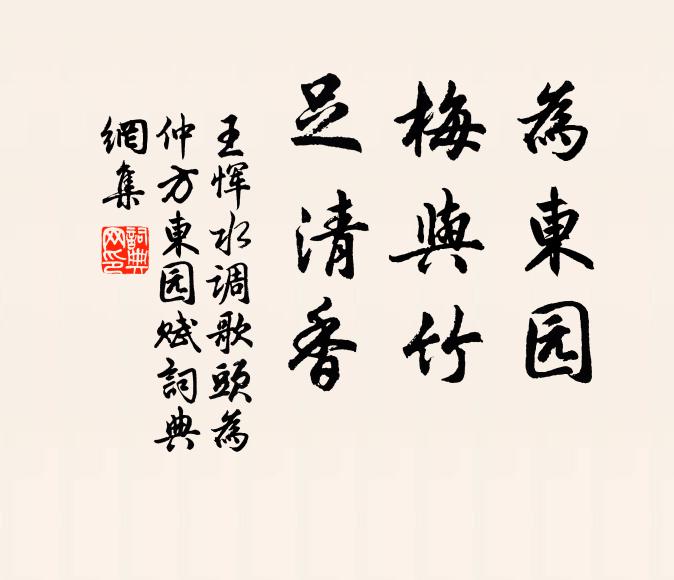 為東园
梅與竹
足清香
王恽水调歌頭為
仲方東园赋詞典
網集
詞典
网印